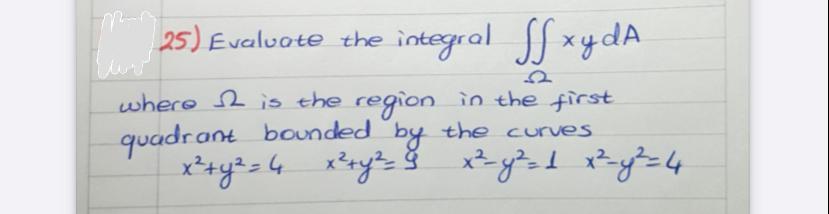 25) Evaluate the integral ∬ xydA
Ω
where Ω is the region in the first
quadrant bounded by the curves
x²+y²=4 x²+y²=9 x²-y²=1 x²-y²=4